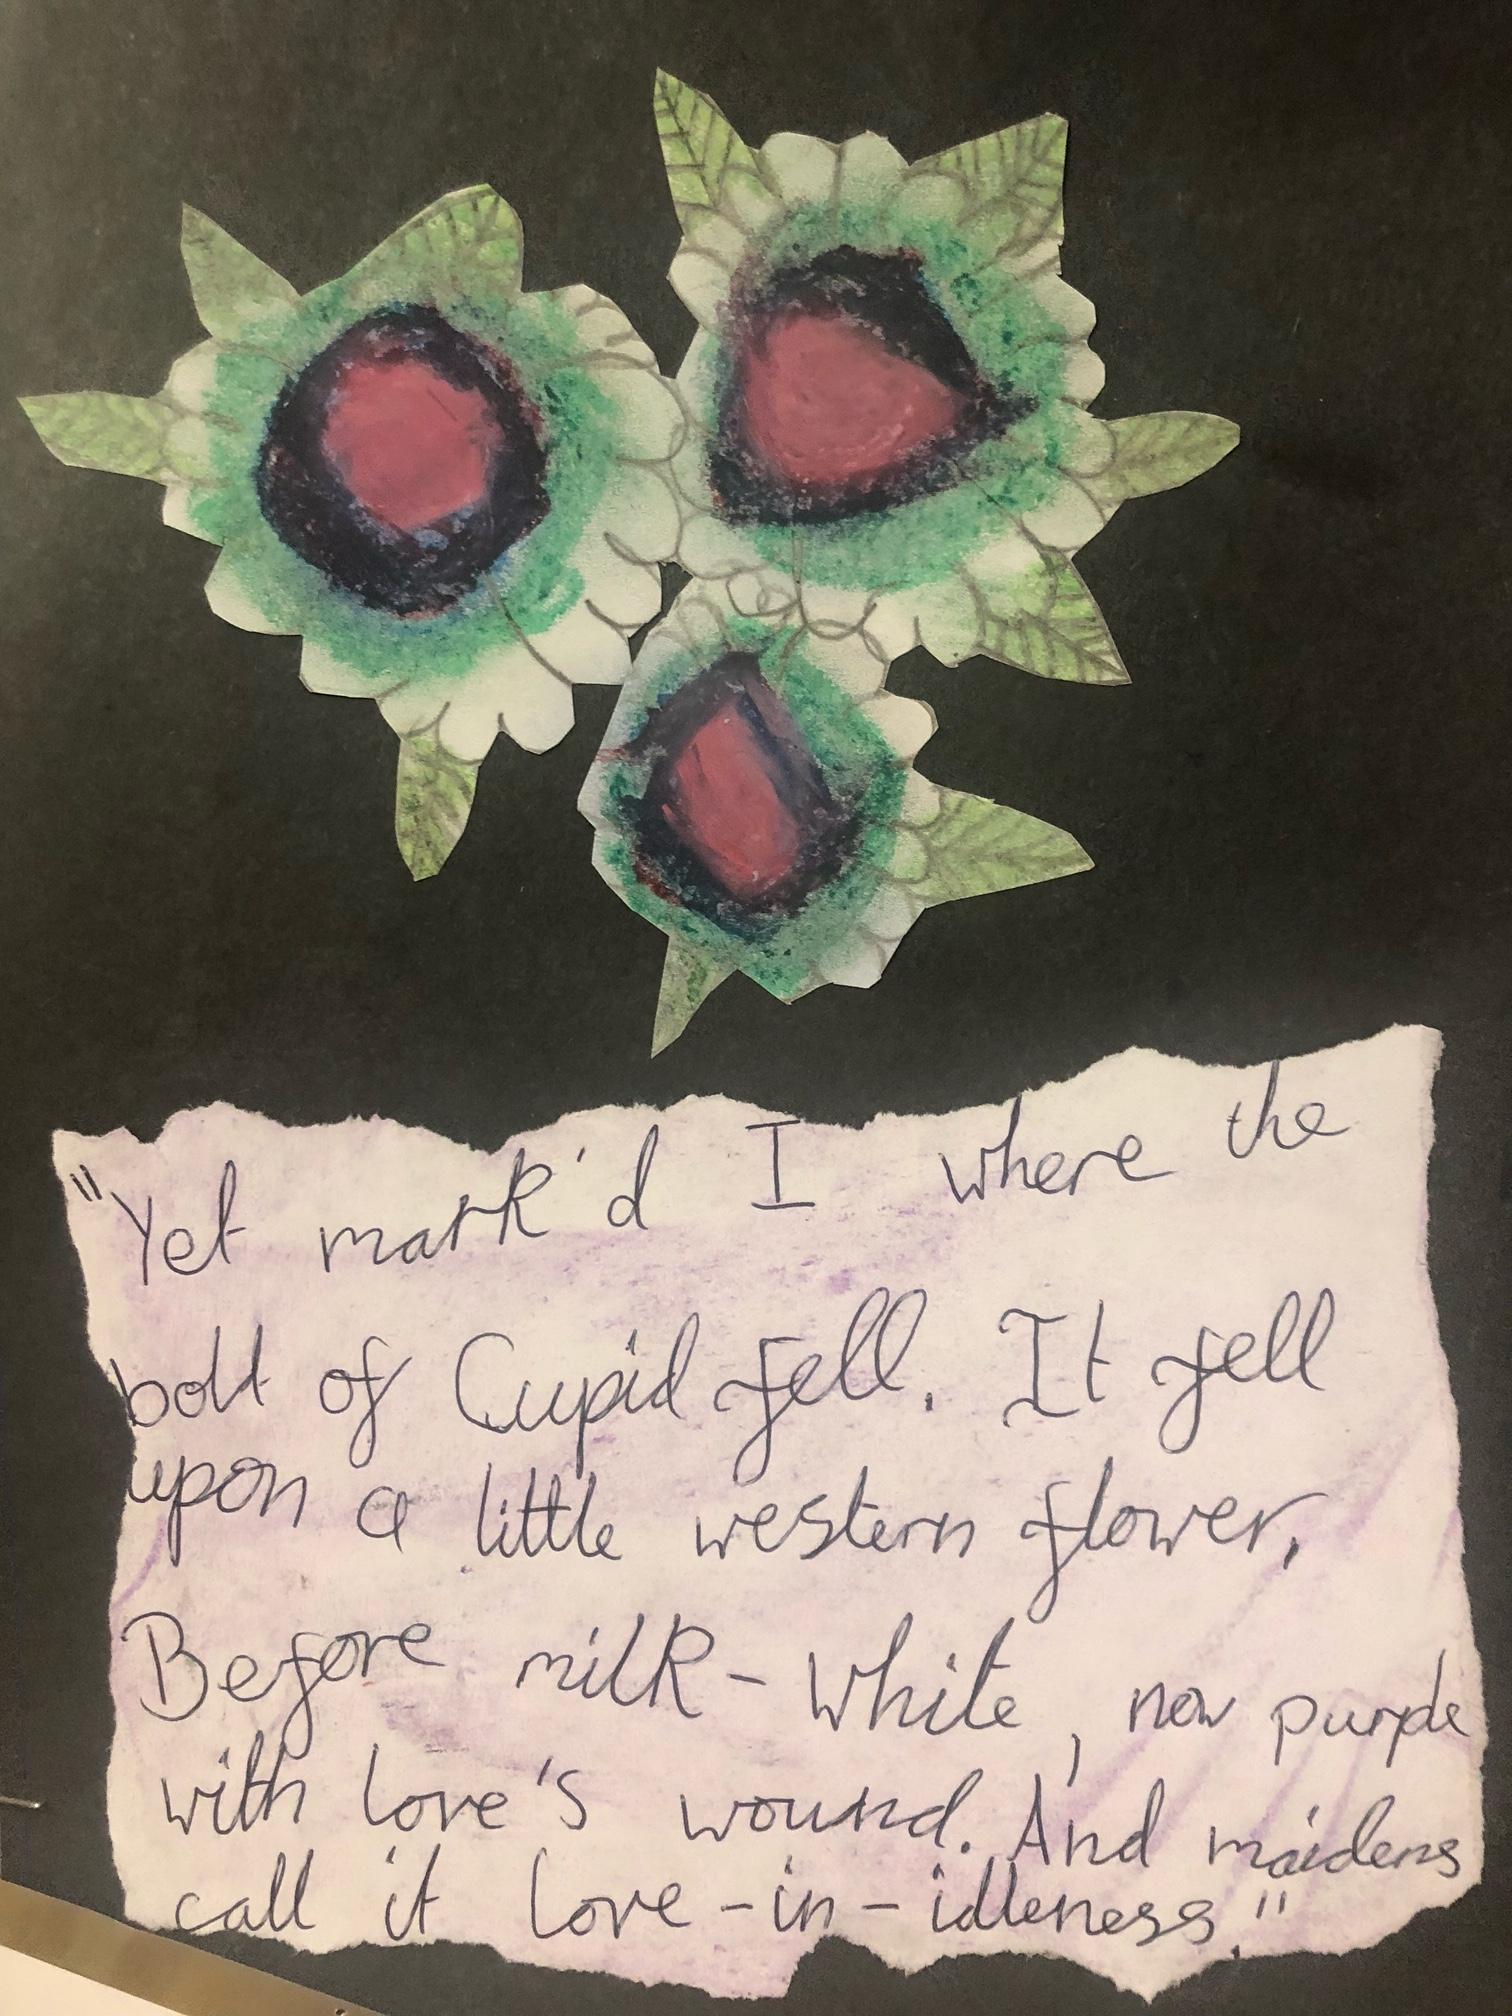 "Yet mark'd I where the
bolt of Cupid fell. It fell
upon a little western flower,
Before milk-white, now purple
with love's wound. And maidens
call it love-in-idleness."